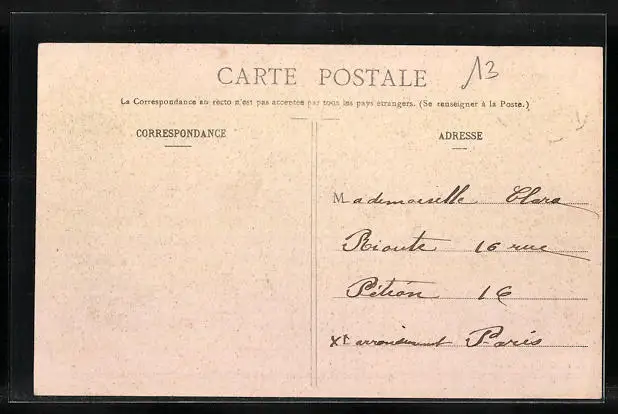 CARTE POSTALE
13
La Correspondance au recto n'est pas acceptée par tous les pays étrangers. (Se renseigner à la Poste.)
CORRESPONDANCE
ADRESSE
Mademoiselle Clara
Rioute 16 rue
Pétion 16
XIe arrondissement Paris